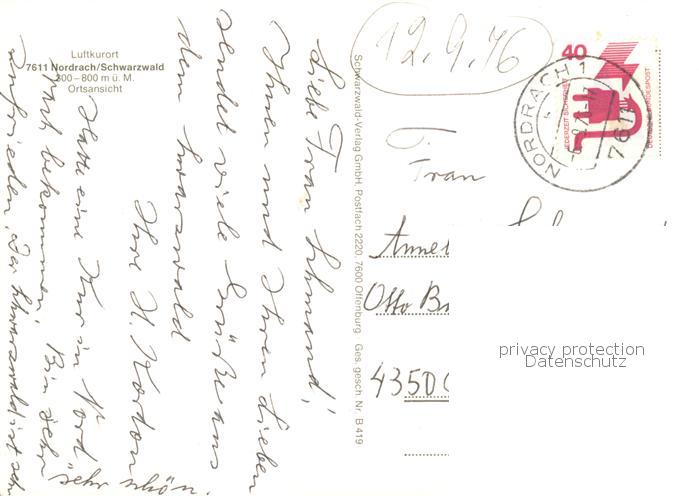 Luftkurort
7611 Nordrach/Schwarzwald
300–800 m ü. M.
Ortsansicht
Liebe Frau Schmand,
Ihnen und Ihren Lieben
sendet viele Grüße aus
dem
Ihre H. Korton
Hatte eine Kur in Nord
bekommen, Bin sehr
zufrieden, Der Schwarzwald ist sehr
sehr schön.
Schwarzwald-Verlag GmbH. Postfach 2220, 7600 Offenburg Ges. gesch. Nr. B 419
12.9.76
40
JEDERZEIT SICHERHEIT
DEUTSCHE BUNDESPOST
NORDRACH 1
7611
Frau
Anne
Otto
4350
privacy protection
Datenschutz